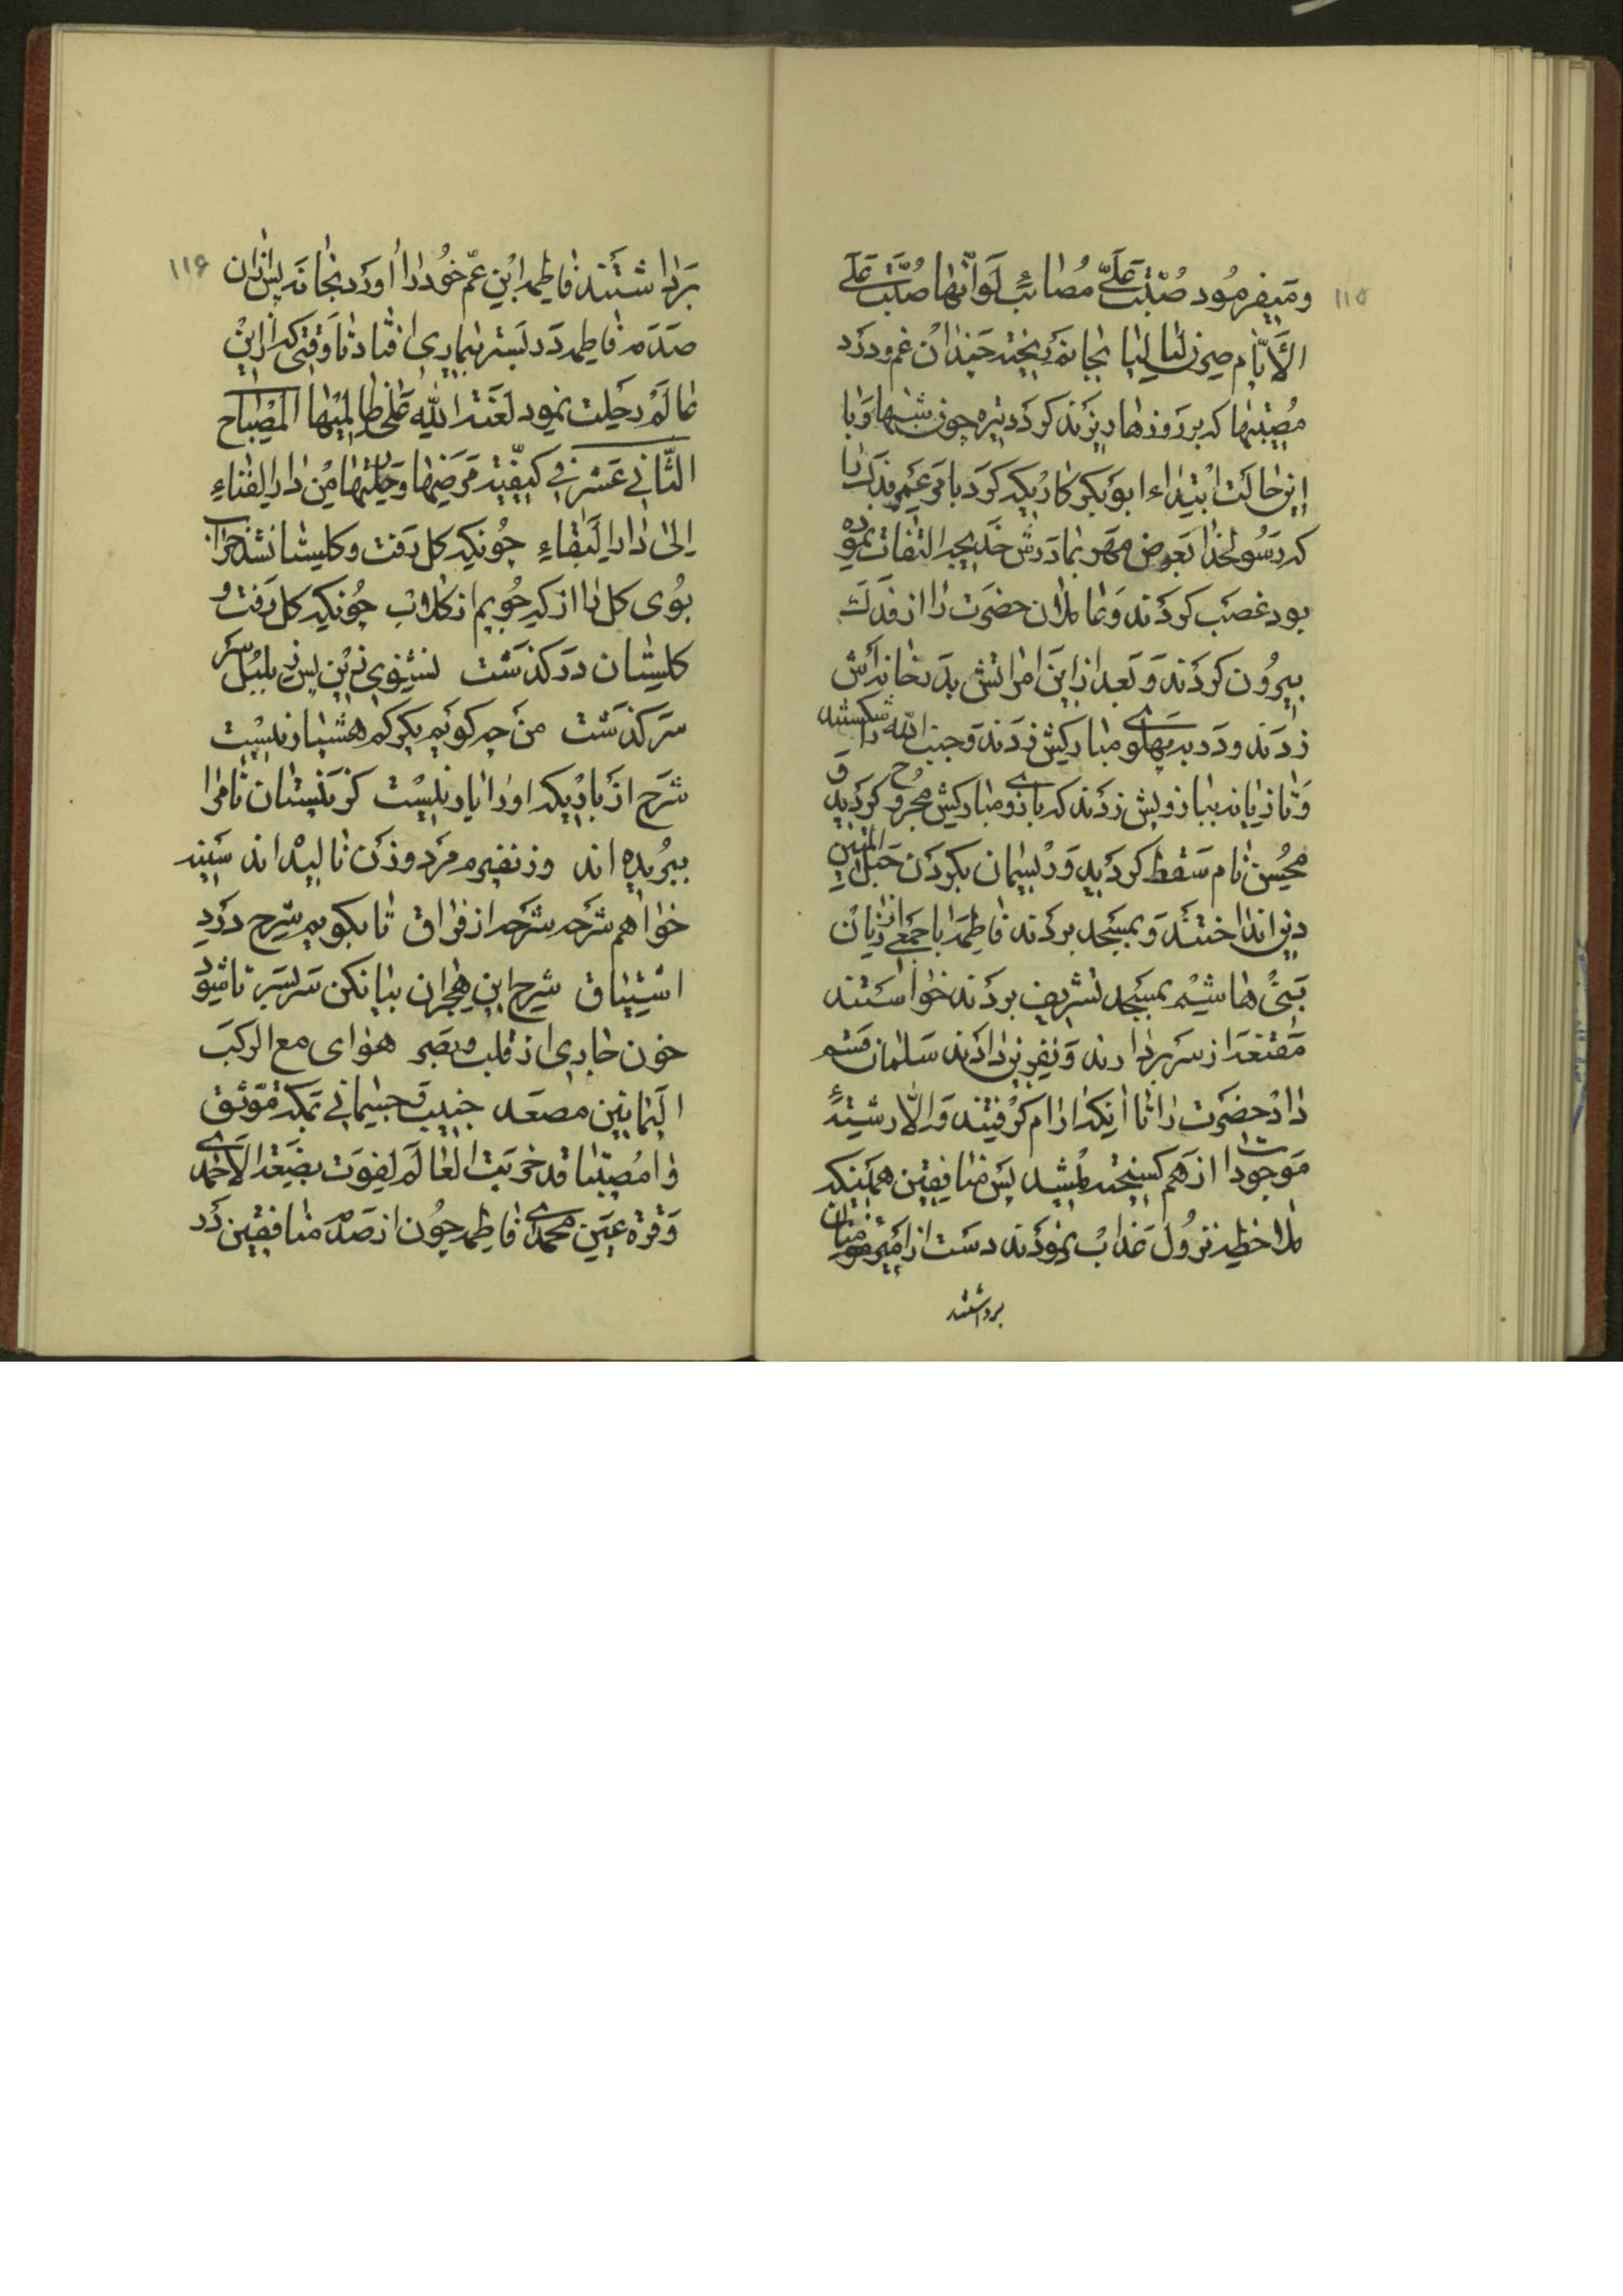 ۱۱۵
ومیفرمود صُبَّت عَلَیَّ مَصائبٌ لَوَانَّها صُبَّت عَلَی
الاَیّام صِرنَ لَیالیا بجانم ریخته چندان غم و درد
مُصیبتها که بر روزها ریزند کردد تیره چون شبها و با
این حالت ابتداء ابوبکر کار یکه کرد با عمر فدک را
که رسولخدا بعوض مهر بمادرش خدیجه التفات نموده
بود غصب کردند و عاملان حضرت را از فدک
بیرون کردند و بعد از این امر اتش بدر خانه اش
زدند و در به پهلوی مبارکش زدند و جنب الله را شکستند
و تازیانه ببازویش زدند که بازوی مبارکش مجروح کردید و
محسن نام سقط کردید و ریسمان بکردن حبل المتین
دین انداختند و بمسجد بردند فاطمه با جمعی از زنان
بنی هاشم بمسجد تشریف بردند خواستند
مقنعه از سر بردارند و نفرین نمایند سلمان قسم
داد حضرت را تا اینکه ارام کرفتند و الا رشتهٔ
موجودات از هم کسیخته میشد پس منافقین همینکه
ملاحظه نزول عذاب نمودند دست از امیر مومنان
برداشتند
۱۱۶
برداشتند فاطمه ابن عم خود را اورد بخانه پس از ان
صدمه فاطمه در بستر بیماری افتاد تا وقتی که از این
عالم رحلت نمود لعنة الله علی ظالمیها المصباح
الثانی عشر فی کیفیة مرضها و رحلتها من دار الفناء
الی دار البقاء چونکه کل رفت و کلستان شد خراب
بوی کل را از که جویم از کلاب چونکه کل رفت و
کلستان در کذشت نشنوی زین پس ز بلبل سر
سر کذشت من چه کویم یکرکم هشیار نیست
شرح از یاریکه او را یار نیست کز نیستان تا مرا
ببریده اند وز نفیرم مرد و زن نالیده اند سینه
خواهم شرحه شرحه از فراق تا بکویم شرح درد
اشتیاق شرح این هجران بیان کن سر بسر تا شود
خون جاری از قلب و بصر هوای مع الرکب
الیمانین مصعد جنیب و جثمانی بمکة موثق
وا مصیبتا قد خربت العالم لفوت بضعة الاحمدی
و قرة عین محمدی فاطمه چون از صدمه منافقین در